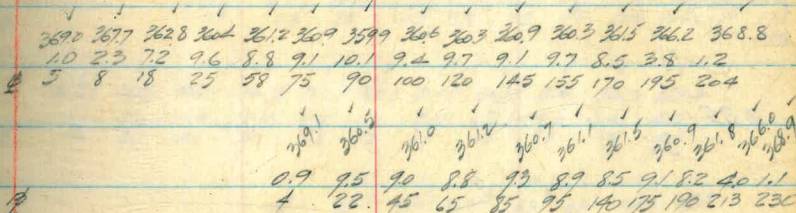 369.0 367.7 362.8 360.4 361.2 360.9 359.9 360.6 360.3 360.9 360.3 361.5 366.2 368.8
1.0 2.3 7.2 9.6 8.8 9.1 10.1 9.4 9.7 9.1 9.7 8.5 3.8 1.2
5 8 18 25 58 75 90 100 120 145 155 170 195 204
369.1 360.5 361.0 361.2 360.7 361.1 361.5 360.9 361.8 366.0 368.9
0.9 9.5 9.0 8.8 9.3 8.9 8.5 9.1 8.2 4.0 1.1
4 22 45 65 85 95 140 175 190 213 230